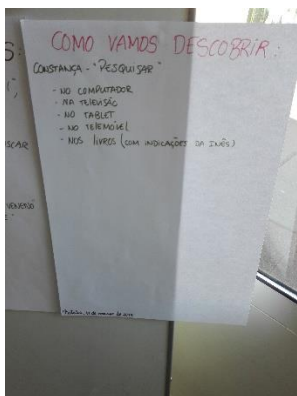 COMO VAMOS DESCOBRIR:
CONSTANÇA - "PESQUISAR"
- NO COMPUTADOR
- NA TELEVISÃO
- NO TABLET
- NO TELEMÓVEL
- NOS LIVROS (COM INDICAÇÕES DA INÊS)
S:
SCAR